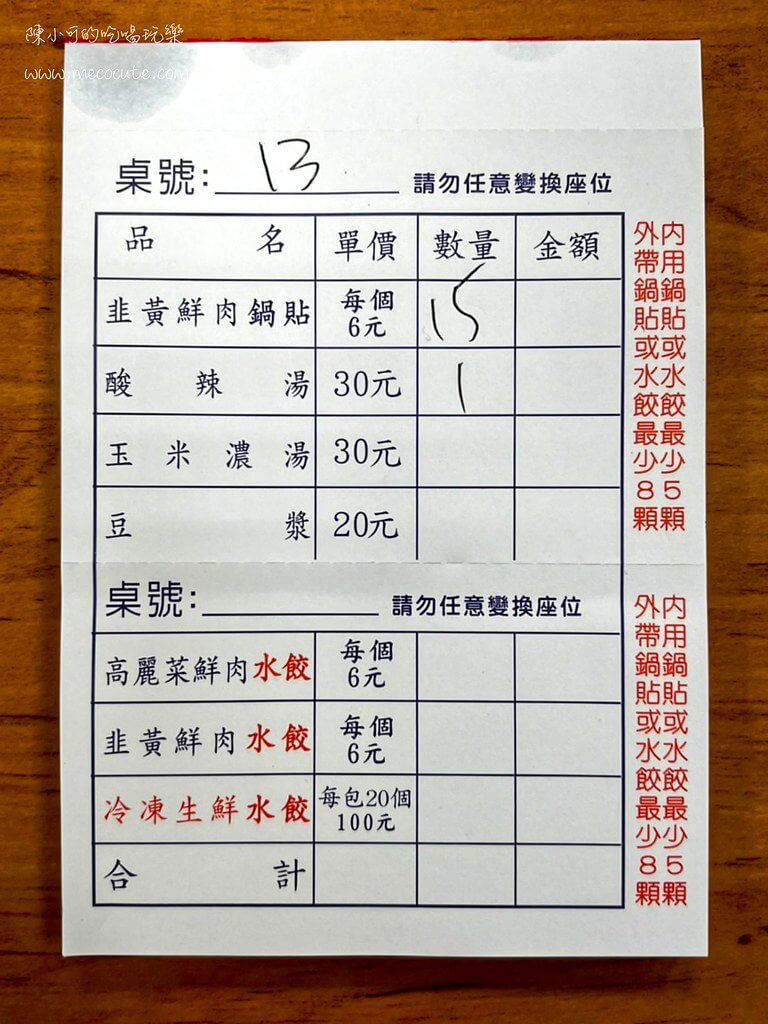 陳小可的吃喝玩樂
www.mecocute.com
桌號: 13 請勿任意變換座位
品名 單價 數量 金額
韭黃鮮肉鍋貼 每個6元 15
酸辣湯 30元 1
玉米濃湯 30元
豆漿 20元
內用鍋貼或水餃最少5顆
外帶鍋貼或水餃最少8顆
桌號: 請勿任意變換座位
高麗菜鮮肉水餃 每個6元
韭黃鮮肉水餃 每個6元
冷凍生鮮水餃 每包20個100元
合計
內用鍋貼或水餃最少5顆
外帶鍋貼或水餃最少8顆